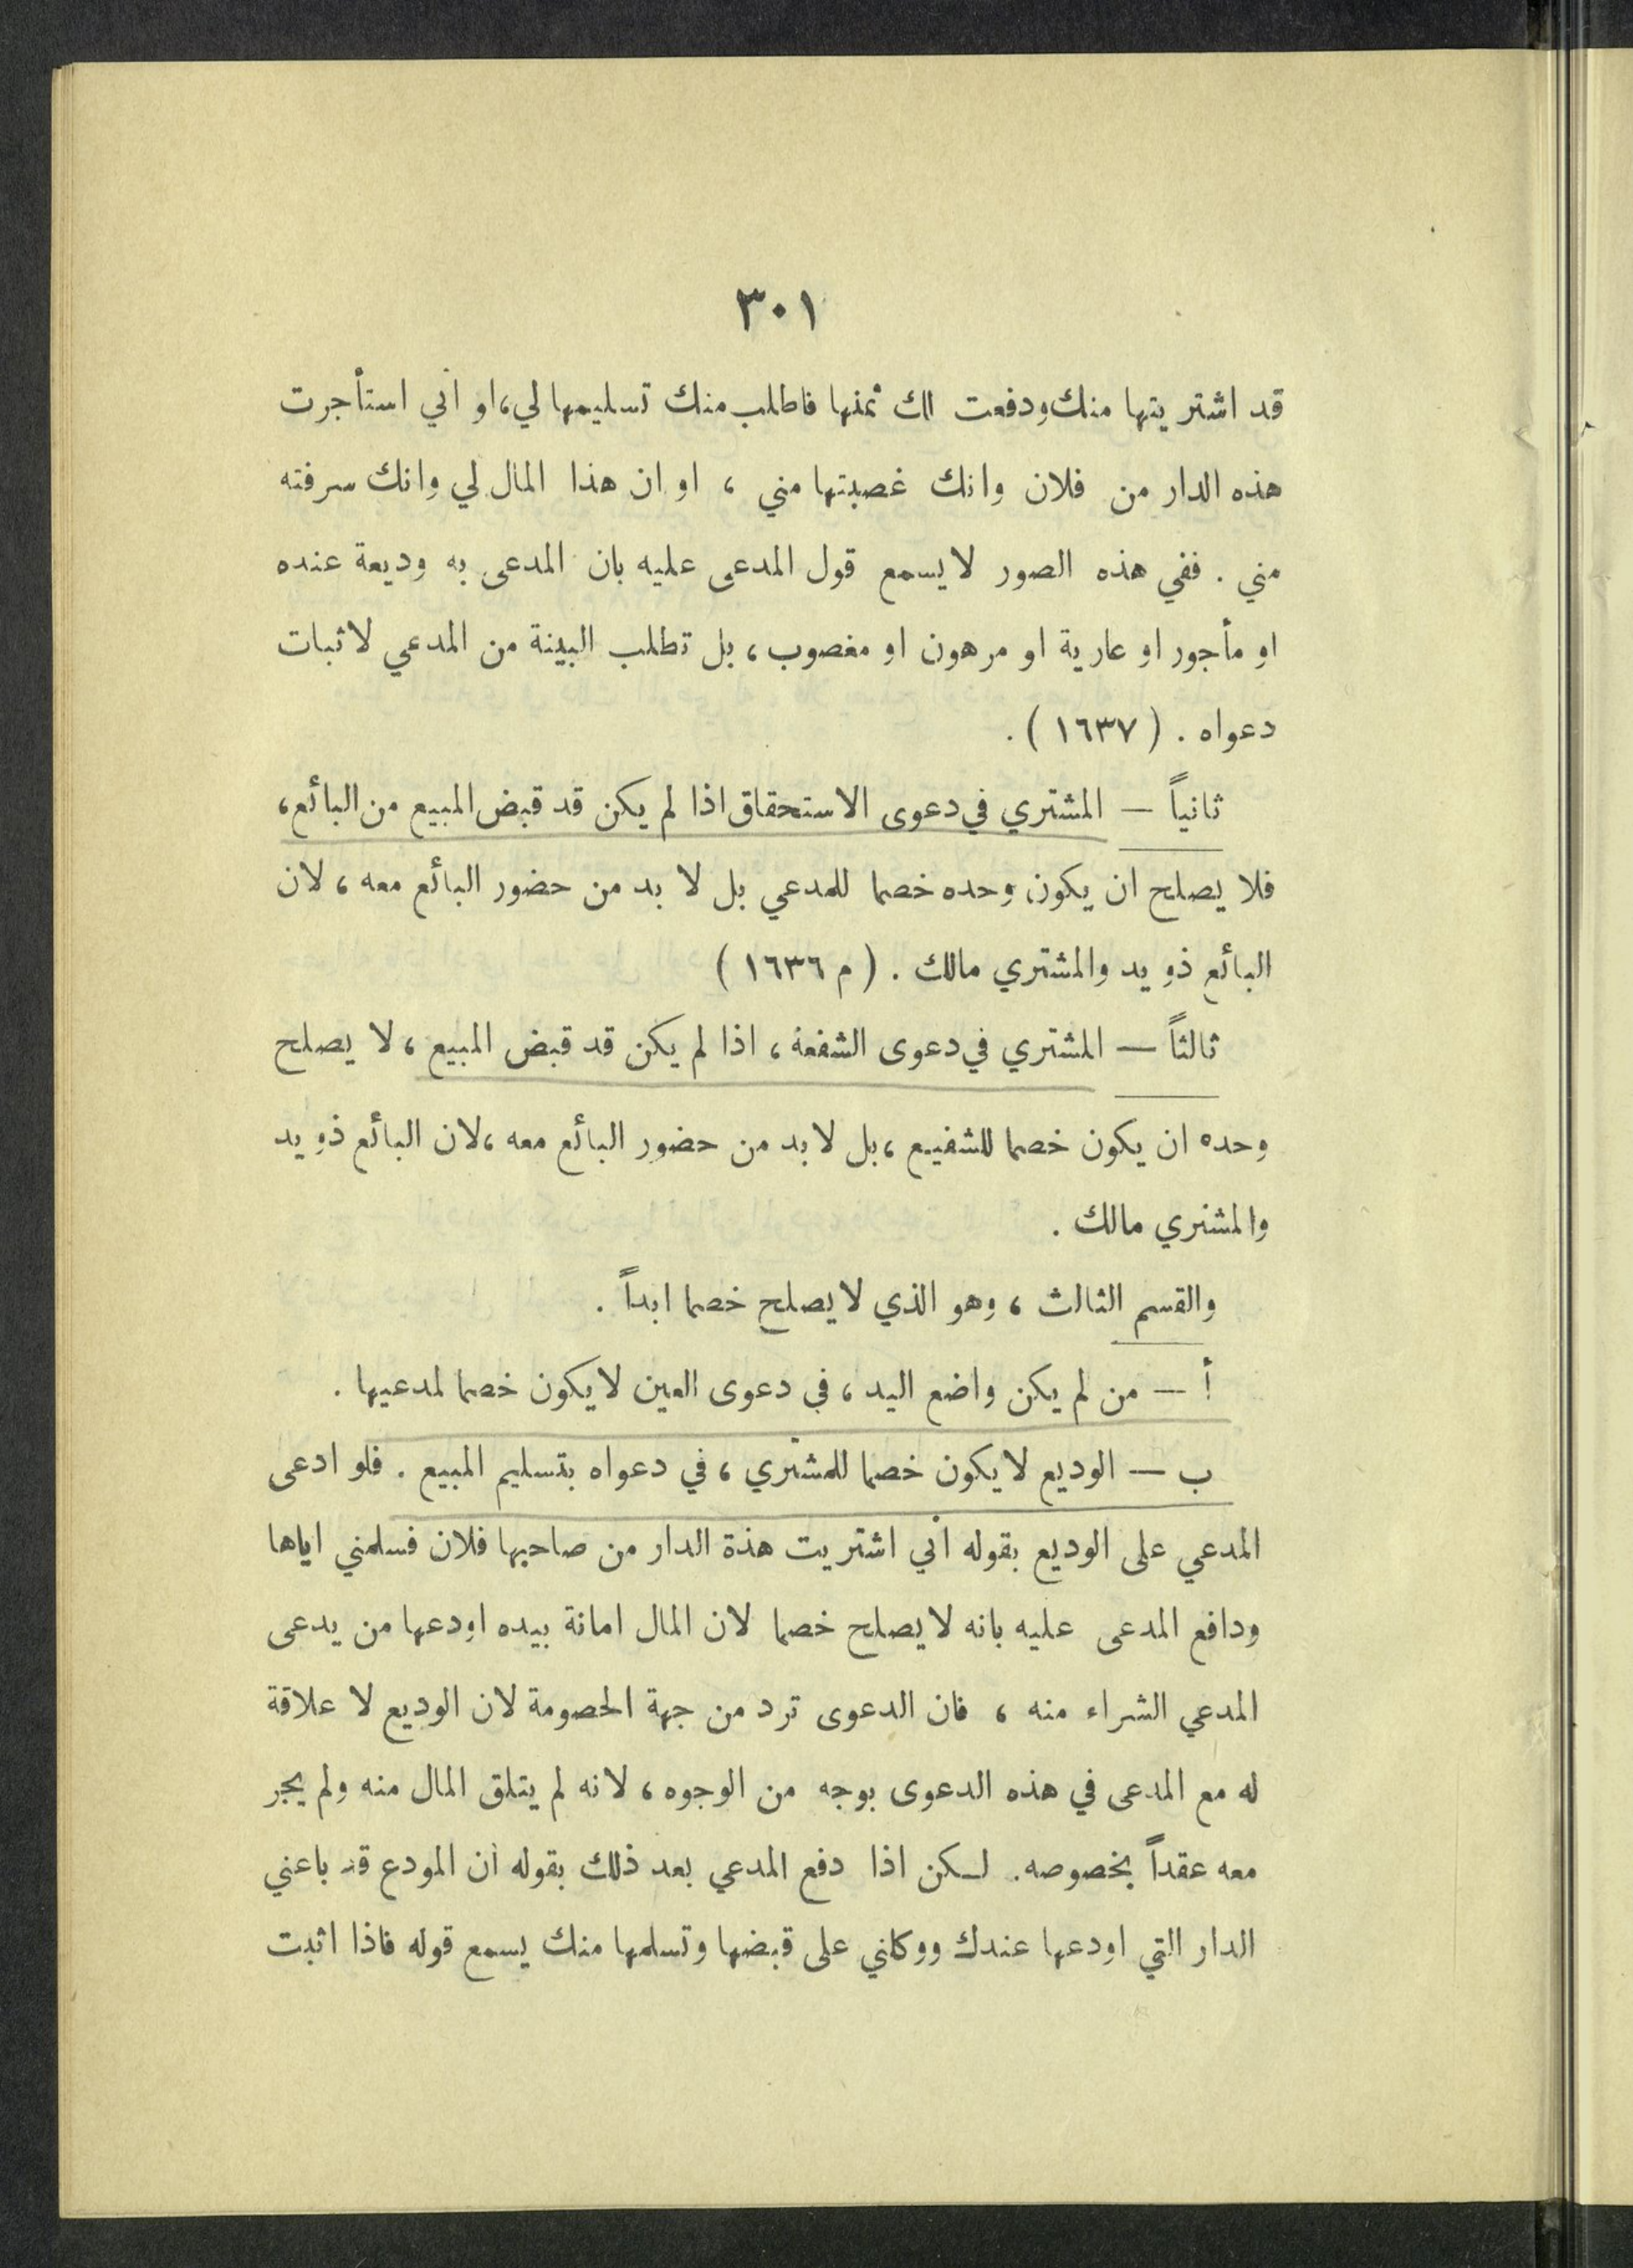 ٣٠١
قد اشتريتها منك ودفعت لك ثمنها فاطلب منك تسليمها لي، او اني استأجرت
هذه الدار من فلان وانك غصبتها مني ، او ان هذا المال لي وانك سرقته
مني . ففي هذه الصور لا يسمع قول المدعى عليه بان المدعى به وديعة عنده
او مأجور او عارية او مرهون او مغصوب، بل تطلب البينة من المدعي لاثبات
دعواه . ( ١٦٣٧ ) .
ثانياً — المشتري في دعوى الاستحقاق اذا لم يكن قد قبض المبيع من البائع،
فلا يصلح ان يكون وحده خصما للمدعي بل لا بد من حضور البائع معه ، لان
البائع ذو يد والمشتري مالك . ( م ١٦٣٦ )
ثالثاً — المشتري في دعوى الشفعة ، اذا لم يكن قد قبض المبيع ، لا يصلح
وحده ان يكون خصما للشفيع ، بل لا بد من حضور البائع معه ، لان البائع ذو يد
والمشتري مالك .
والقسم الثالث ، وهو الذي لا يصلح خصما ابداً .
أ — من لم يكن واضع اليد ، في دعوى العين لا يكون خصما لمدعيها .
ب — الوديع لا يكون خصما للمشتري ، في دعواه بتسليم المبيع . فلو ادعى
المدعي على الوديع بقوله اني اشتريت هذة الدار من صاحبها فلان فسلمني اياها
ودافع المدعى عليه بانه لا يصلح خصما لان المال امانة بيده اودعها من يدعى
المدعي الشراء منه ، فان الدعوى ترد من جهة الخصومة لان الوديع لا علاقة
له مع المدعى في هذه الدعوى بوجه من الوجوه ، لانه لم يتلق المال منه ولم يجر
معه عقداً بخصوصه. لكن اذا دفع المدعي بعد ذلك بقوله ان المودع قد باعني
الدار التي اودعها عندك ووكلني على قبضها وتسلمها منك يسمع قوله فاذا اثبت